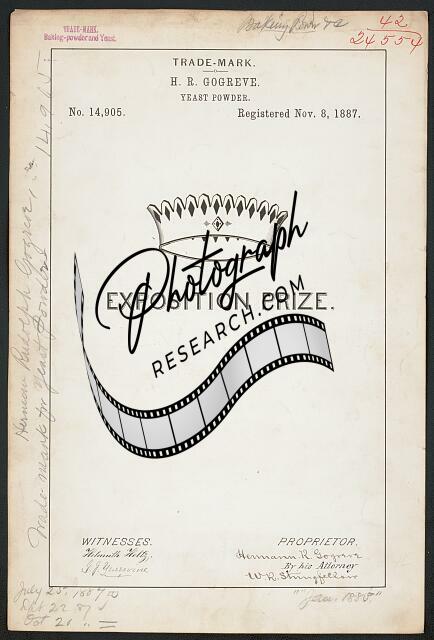 TRADE-MARK.
Baking-powder and Yeast.
Baking Powder
42
24554
TRADE-MARK.
H. R. GOGREVE.
YEAST POWDER.
No. 14,905.
Registered Nov. 8, 1887.
Photograph
EXPOSITION PRIZE.
RESEARCH.COM
Herman Rudolph Gogreve, 14,905
Trade mark for Yeast Powders
WITNESSES.
PROPRIETOR.
Hermann R. Gogreve
By his Attorney
W. R. Stringfellow
July 25, 1887
Oct 21 "
"Jan. 1885"